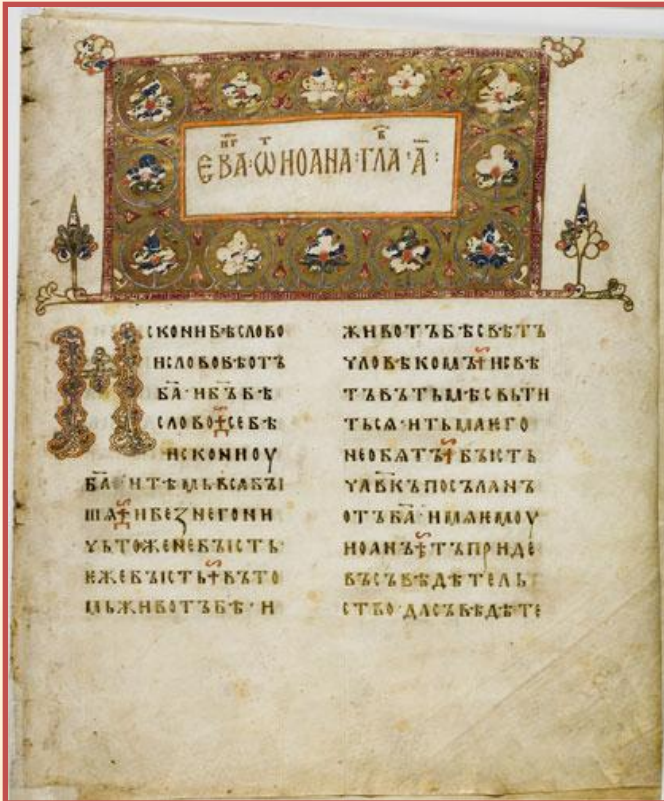 ЄВАНГ·Ѿ НОАНА·ГЛАВ·А҃:
ИСКОНИ БѢ СЛОВО
И СЛОВО БѢ ОТЪ
БА҃·И БЪ҃ БѢ
СЛОВО СЕ БѢ
ИСКОНИ ОУ
БА҃·И ТѢМЬ ВЬСѦ БЫ
ШѦ И БЕЗ НЕГО НИ
ЧЬТОЖЕ НЕ БЫСТЬ
ЕЖЕ БЪІСТЬ ВЪ ТО
МЬ ЖИВОТЪ БѢ·И
ЖИВОТЪ БѢ СВѢТЪ
ЧЛОВѢКОМЪ И СВѢ
ТЪ ВЪ ТЬМѢ СВЬТИ
ТЬСѦ·И ТЬМА ѤГО
НЕ ОБѦТЪ БЪІСТЬ
ЧЛ҃ВКЪ ПОСЪЛАНЪ
ОТЪ БА҃·ИМѦ ѤМОУ
ИОАНЪ ТЪ ПРИДЕ
ВЪ СЪВѢДѢТЕЛЬ
СТВО·ДА СЪВѢДѢТЕ